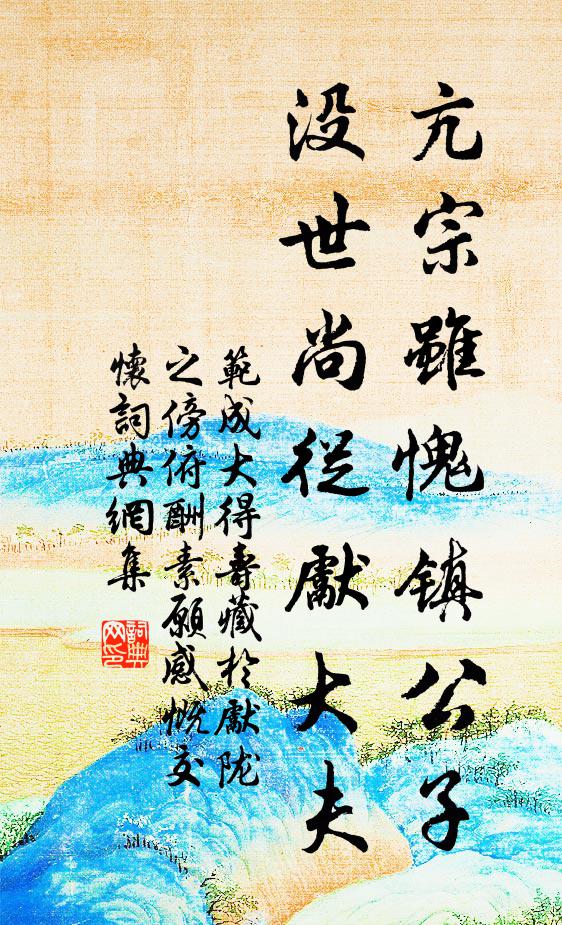 亢宗雖愧镇公子
没世尚從獻大夫
範成大得壽藏於獻陇
之傍俯酬素願感慨交
懷詞典網集
詞典网印